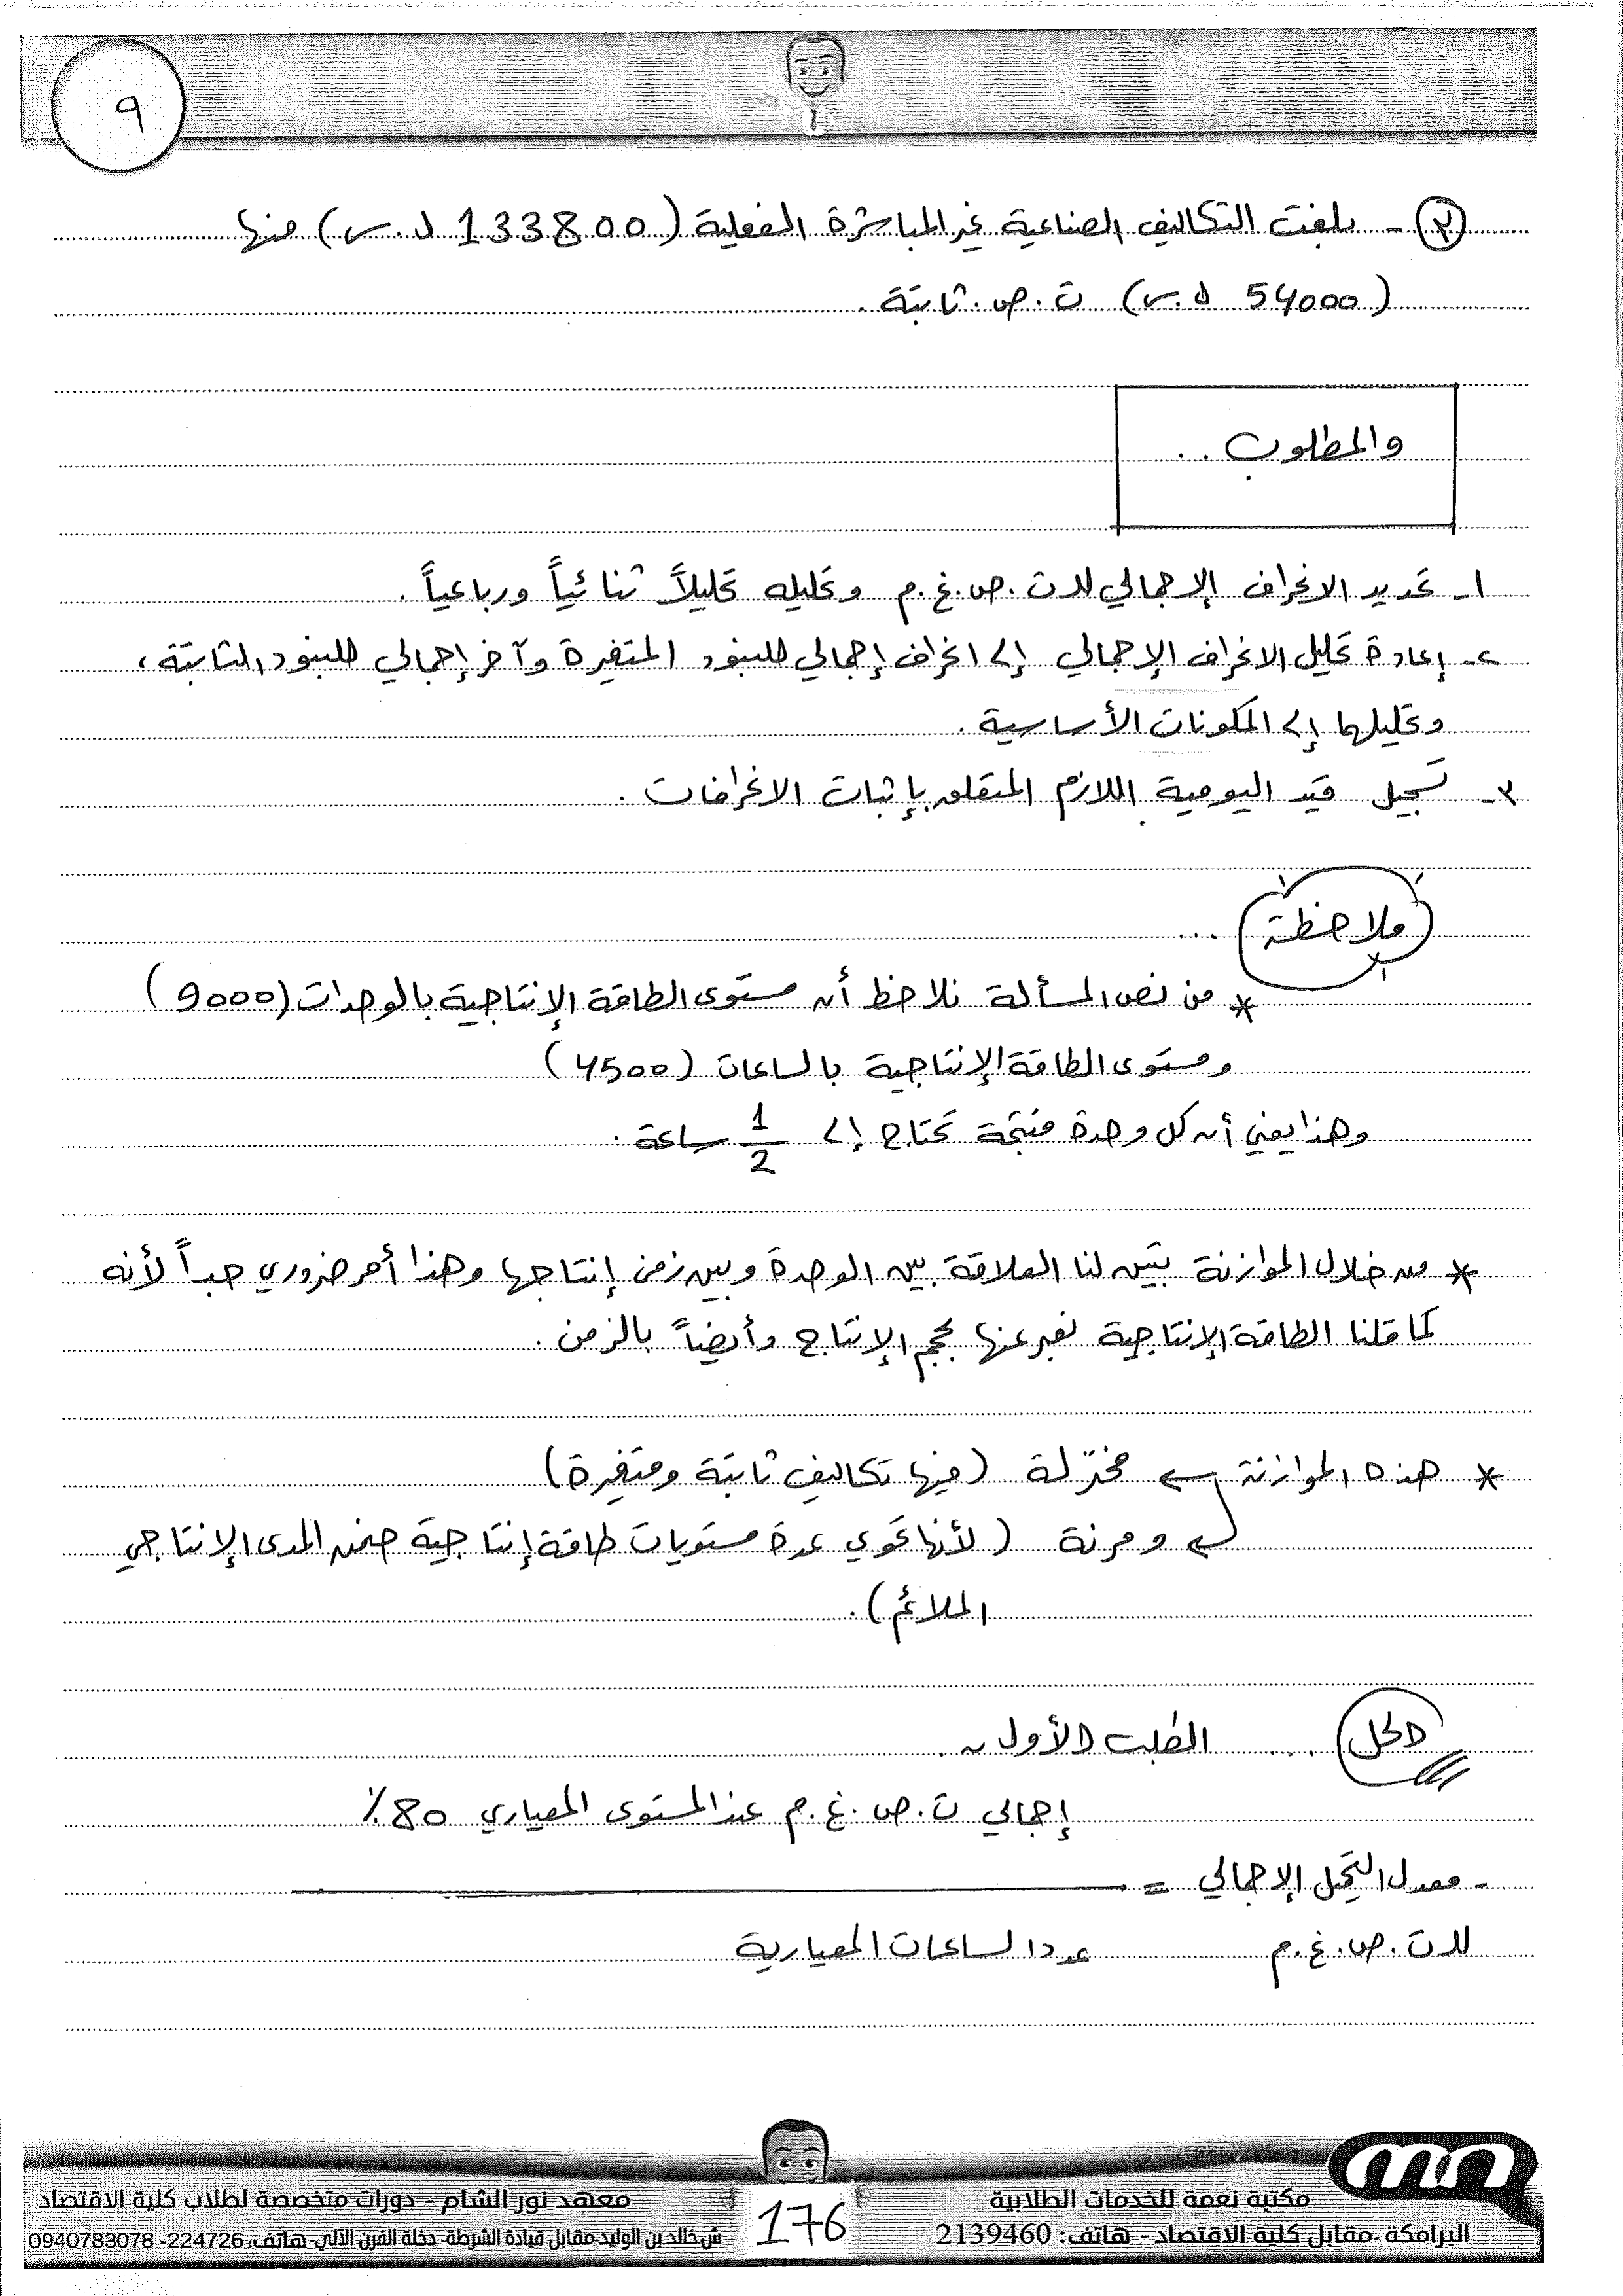 ٩
٣ - بلغت التكاليف الصناعية غير المباشرة الفعلية (133800 ل.س) منها
(54000 ل.س) ت.ص.ثابتة.
والمطلوب..
١- تحديد الانحراف الإجمالي للت.ص.غ.م وتحليله تحليلاً ثنائياً ورباعياً.
٢- إعادة تحليل الانحراف الإجمالي إلى انحراف إجمالي للبنود المتغيرة وآخر إجمالي للبنود الثابتة،
وتحليلها إلى المكونات الأساسية.
٣- تسجيل قيد اليومية اللازم المتعلق بإثبات الانحرافات.
ملاحظة ...
* من نص المسألة نلاحظ أن مستوى الطاقة الإنتاجية بالوحدات (9000)
ومستوى الطاقة الإنتاجية بالساعات (4500)
وهذا يعني أن كل وحدة منتجة تحتاج إلى 1/2 ساعة.
* من خلال الموازنة يتبين لنا العلاقة بين الوحدة وبين زمن إنتاجها وهذا أمر ضروري جداً لأنه
كما قلنا الطاقة الإنتاجية نعبر عنها بحجم الإنتاج وأيضاً بالزمن.
* هذه الموازنة ← مختزلة (فيها تكاليف ثابتة ومتغيرة)
← ومرنة (لأنها تحوي عدة مستويات طاقة إنتاجية ضمن المدى الإنتاجي
الملائم).
الحل ... الطلب الأول..
إجمالي ت.ص.غ.م عند المستوى المعياري 80٪
- معدل التحميل الإجمالي =
للت.ص.غ.م عدد الساعات المعيارية
معهد نور الشام - دورات متخصصة لطلاب كلية الاقتصاد
ش.خالد بن الوليد-مقابل قيادة الشرطة- دخلة الفرن الآلي-هاتف: 224726- 0940783078
176
مكتبة نعمة للخدمات الطلابية
البرامكة -مقابل كلية الاقتصاد - هاتف: 2139460